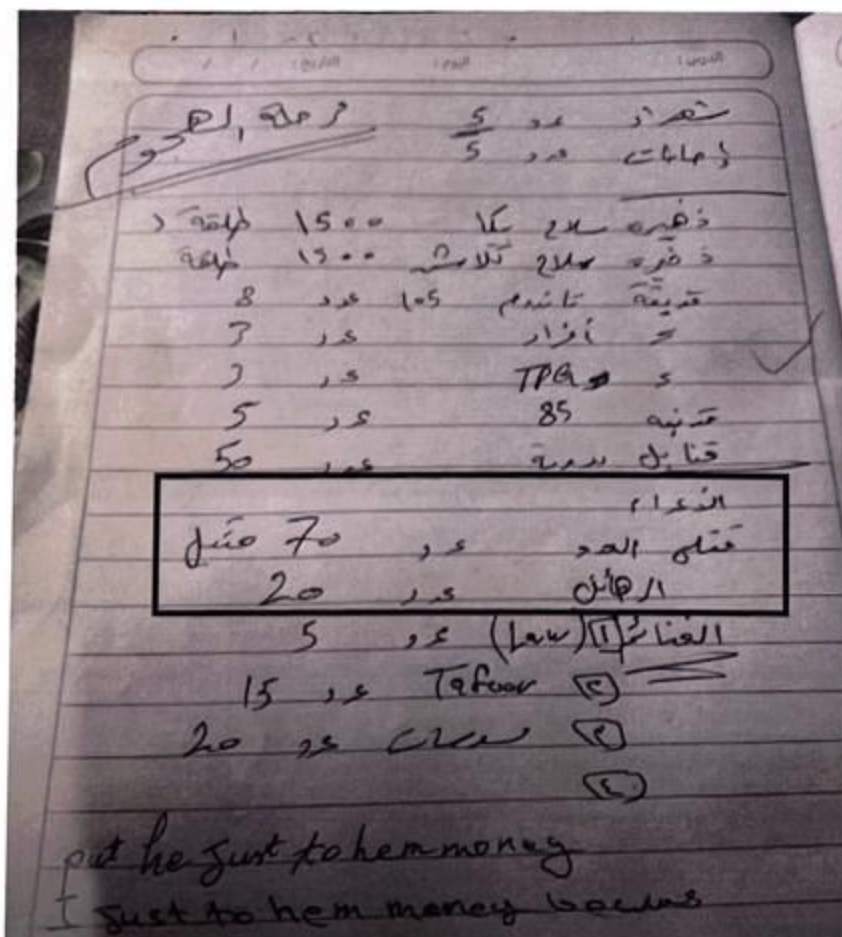 التاريخ: / / اليوم: الدرس:
شهداء عدد 5 مرحلة الهجوم
إصابات عدد 5
ذخيره سلاح بكا 1500 طلقة
ذخيره سلاح كلاشن 1500 طلقة
قذيفة تاندوم 105 عدد 8
= أفراد عدد 3
= TPG عدد 3
قذيفه 85 عدد 5
قنابل يدوية عدد 50
قتلى العدو عدد 70 قتيل
الرهائن عدد 20
الغنائم 1 (Law) عدد 5
2 Tafoor عدد 15
3 عدد 20
4
put he just to hem money
I just to hem money